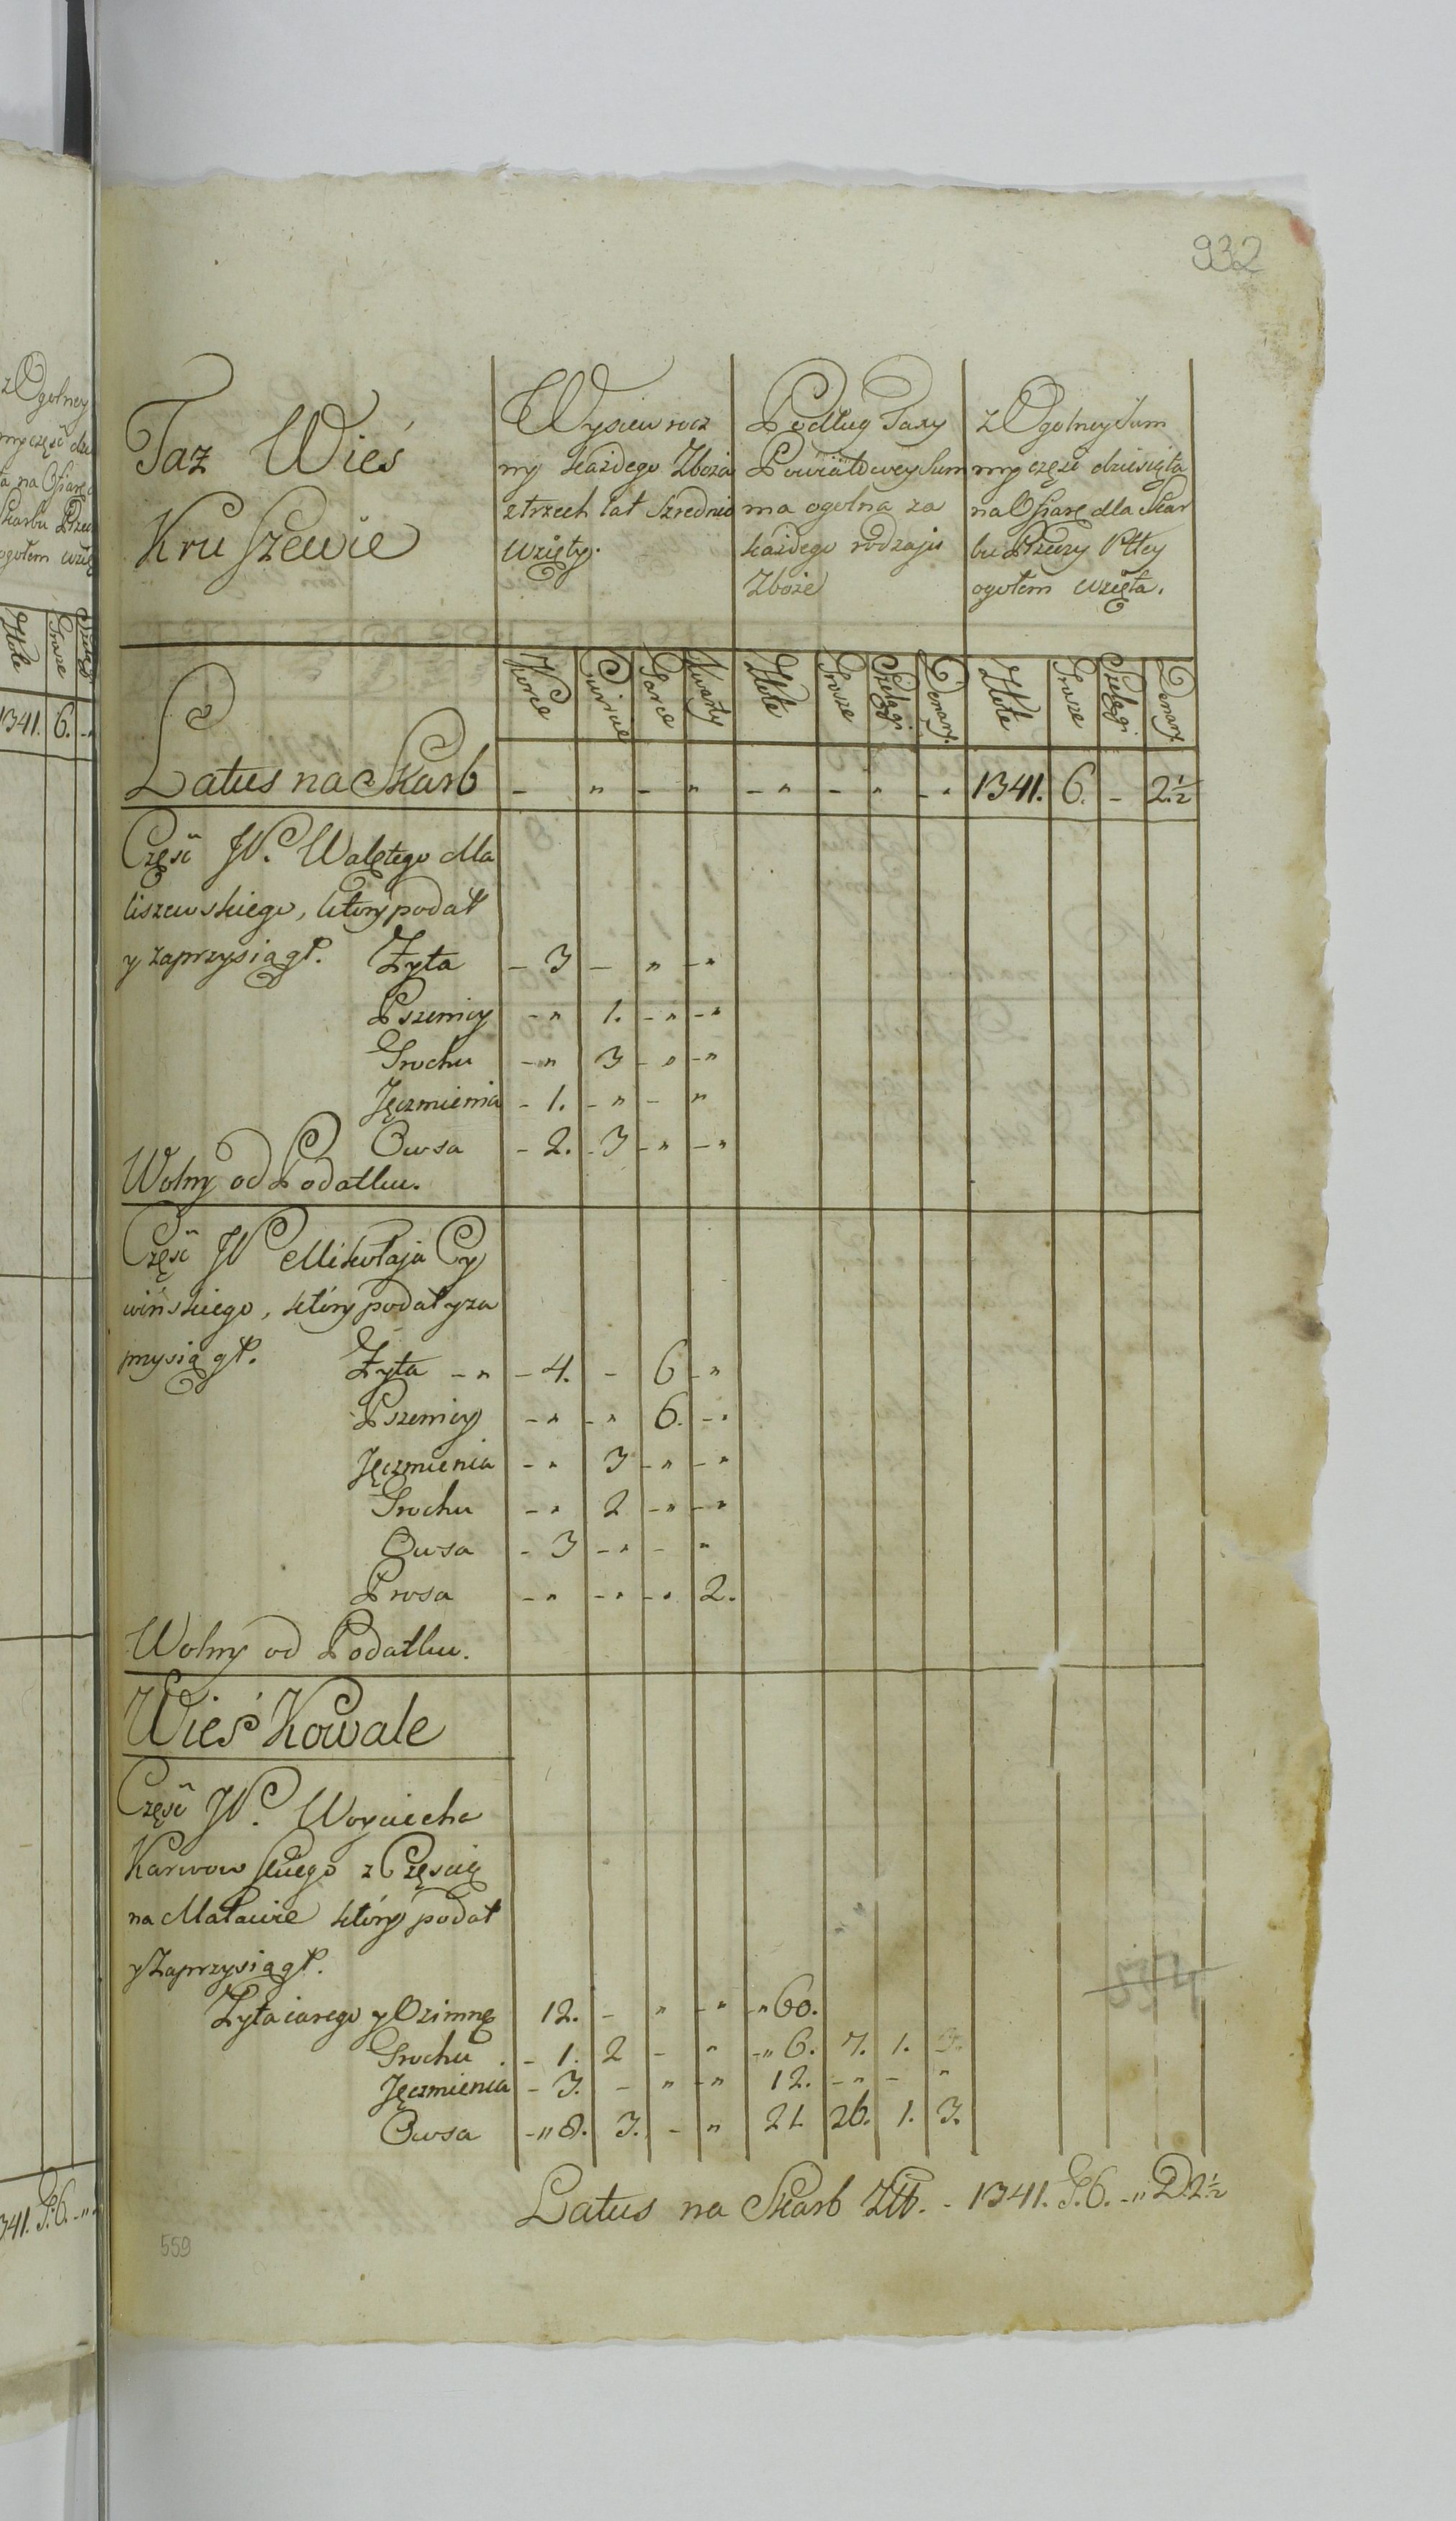 932
Taz Wieś
Kruszewie
Wysiew rocz
ny każdego Zboża
z trzech lat szrednio
wzięty.
Podług Taxy
Powiatowey Sum
ma ogolna za
każdego rodzaju
Zboże
z Ogolney Sum
my część dziesiąta
na Ofiarę dla Skar
bu Rzeczy Pltey
ogołem wzięta.
Korce Cwircie Garce Kwarty Złote Grosze Szelągi Denary Złote Grosze Szelągi Denary
Latus na Skarb - " - " - " - " - " 1341. 6. - 2 1/2
Część JP. Walętego Ma
liszewskiego, ktory podał
y zaprzysiągł. Żyta - 3 - " - "
Pszenicy - " 1. - " - "
Grochu - " 3 - " - "
Jęczmienia - 1. - " - "
Owsa - 2. - 3 - " - "
Wolny od Podatku.
Część JP Mikołaja Cy
wińskiego, który podał y za
przysiągł. Żyta - " - 4. - 6 - "
Pszenicy - " - " 6. - "
Jęczmienia - " 3 - " - "
Grochu - " 2 - " - "
Owsa - 3 - " - "
Prosa - " - " - " 2.
Wolny od Podatku.
Wieś Kowale
Część JP. Woyciecha
Karwowskiego z Częscią
na Maławie który podał
y Zaprzysiągł.
Żyta iarego y Ozimnę 12. - " - " - " 60.
Grochu . - 1. 2 - " - " 6. 7. 1. 3.
Jęczmienia - 3. - " - " 12. - " - "
Owsa - " 8. 3. - " 21 26. 1. 3.
Latus na Skarb Złt. - 1341. G. 6. - " D. 2 1/2
559
z Ogolney
my część
a na Ofiarę
Skarbu Rzec
ogołem wzię
Złote Grosze Szelągi
1341. 6. -
341. G. 6. - "